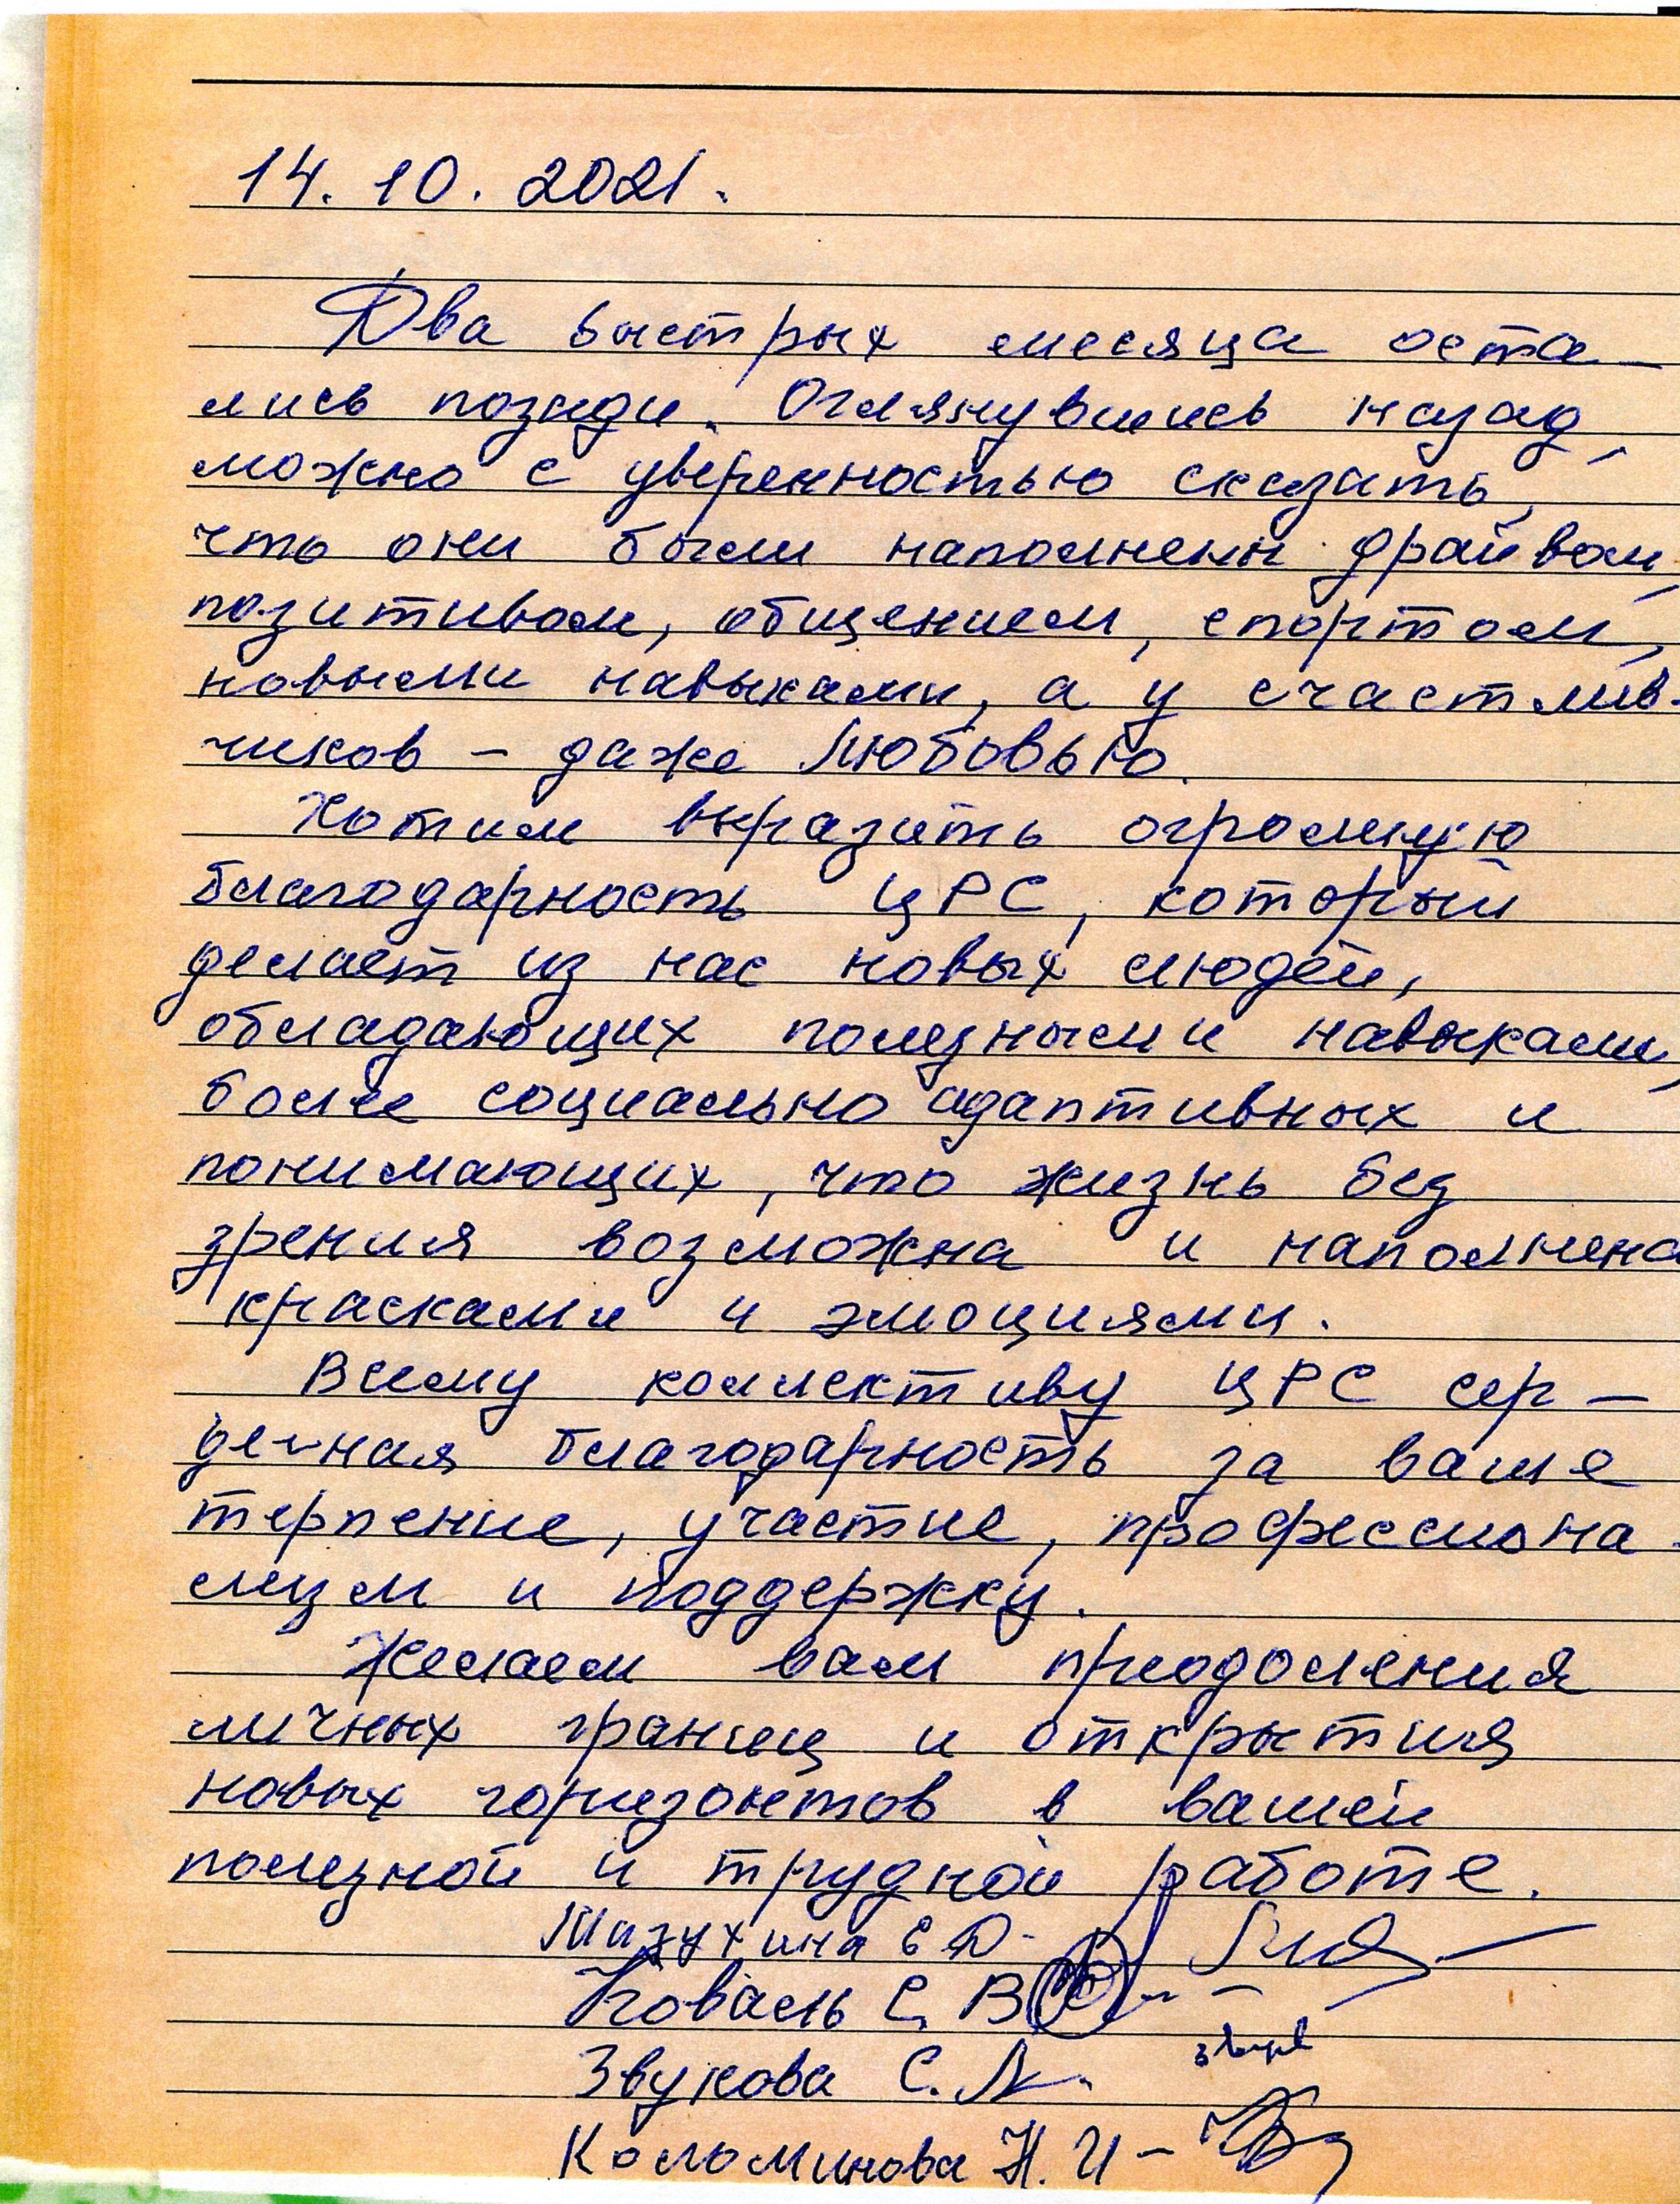 14. 10. 2021.
Два быстрых месяца оста-
лись позади. Оглянувшись назад,
можно с уверенностью сказать,
что они были наполнены драйвом,
позитивом, общением, спортом,
новыми навыками, а у счастлив-
чиков - даже любовью.
Хотим выразить огромную
благодарность ЦРС, который
делает из нас новых людей,
обладающих полезными навыками,
более социально адаптивных и
понимающих, что жизнь без
зрения возможна и наполнена
красками и эмоциями.
Всему коллективу ЦРС сер-
дечная благодарность за ваше
терпение, участие, профессиона-
лизм и поддержку.
Желаем вам преодоления
личных границ и открытия
новых горизонтов в вашей
полезной и трудной работе.
Е Д.
Коваль С. В
Звукова С. А.
Коломинова Н. И -